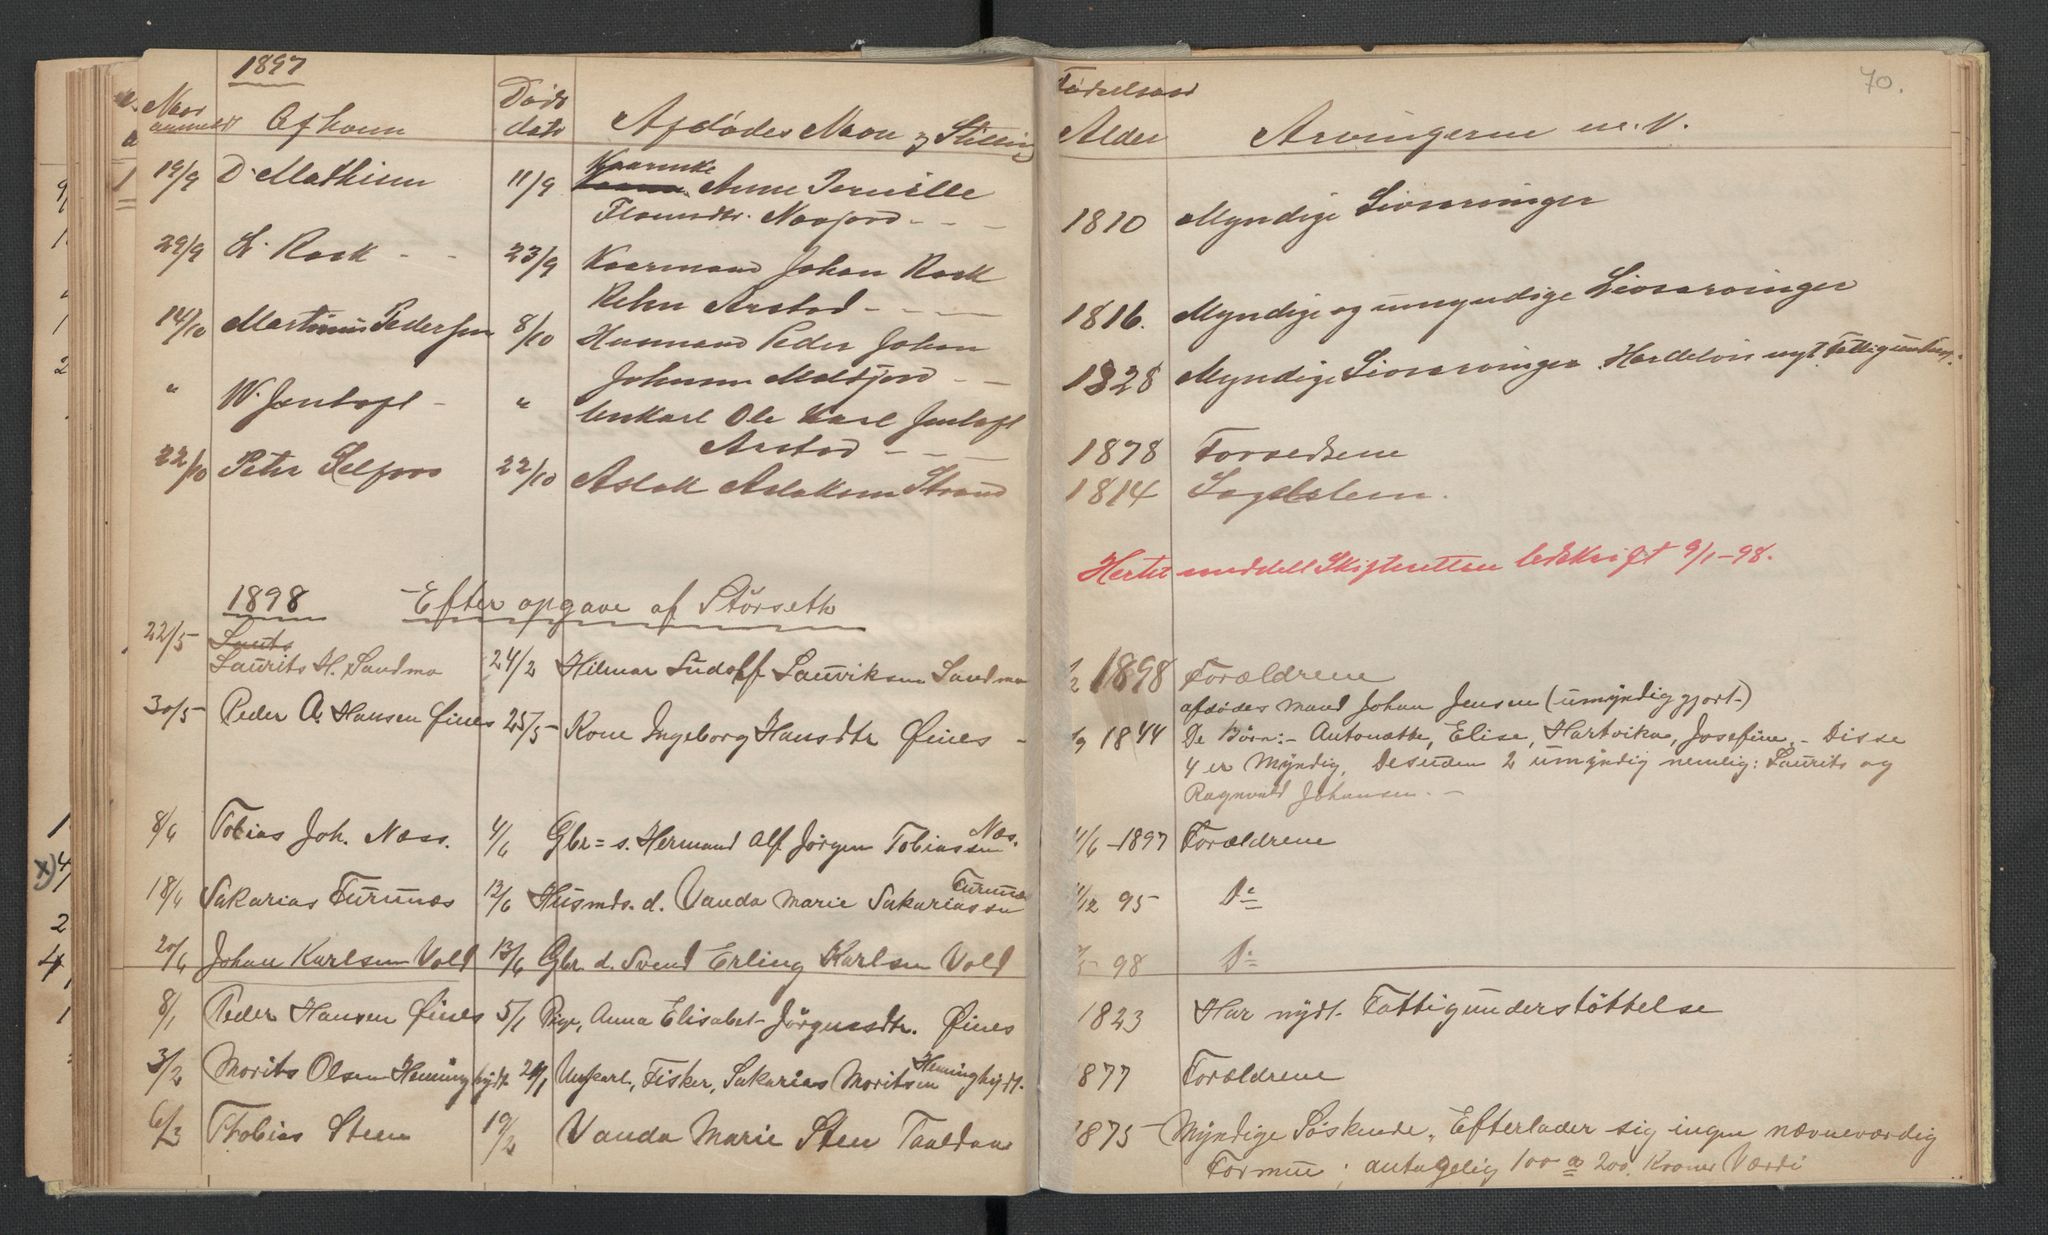 70.
1897
Naar anmeldt Af hvem Døds dato Afdødes Navn og Stilling Fødselsaar Alder Arvingerne m.V.
19/9 D. Mathisen 11/9 Kaarenke Anne Pernille
Naafjord - - 1810 Myndige Livsarvinger
29/9 L. Rask - - 23/9 Kaarmand Johan Rask
Rehn Arstad - - - 1816. Myndige og umyndige Livsarvinger
14/10 Martinus Pedersen 8/10 Husmand Peder Johan
Johnsen - - 1828 Myndige Livsarvinger. Har delvis nydt Fattigunderst.
" W. Jentoft - " Unkarl Ole Karl Jentoft
Arstad - - - 1878 Forældrene
22/10 Peter Selfors 22/10 Aslak Aslaksen Strand 1814
Herter meddelt Skifteretten Udskrift 9/1-98.
1898 Efter opgave af Storseth
22/5 Lauits
Laurits H. Sandmo 24/2 Hilmar Ludolf Lauriksen Sandmo 1/2 1898 Forældrene
30/5 Peder A. Hansen Øines 25/5 Kone Ingeborg Hansdtr Øines - 1844 afdødes mand Johan Jensen (umyndiggjort)
De Børn:- Antonette, Elise, Hartvika, Josefine, - Disse
4 er Myndig, Desuden 2 umyndig nemlig: Laurits og
Ragnvald Johansen. -
8/6 Tobias Joh. Næss. 4/6 Gbr = s. Hermand Alf Jørgen Tobiassen Næs. 4/6-1897 Forældrene
18/6 Sakarias Furunæs 12/6 Husmds. d. Vanda Marie Sakariassen Furunæs /12 95 Do
20/6 Johan Karlsen Vold 13/6 Gbr. d. Svend Erling Karlsen Vold 98 Do
8/1 Peder Hansen Øines 5/1 Pige, Anna Elisabet Jørgensdtr. Øines 1823 Har nydt Fattigunderstøttelse
3/2 Morits Olsen Heminghydt 29/1 Unkarl, Fisker, Sakarias Moritsen Heminghydt. 1877 Forældrene
6/3 Thobias Steen 19/2 Vanda Marie Steen Taaldaa 1875 Myndige Søskende, Efterlader sig ingen nævneværdig
Formue; antagelig 100 a 200. Kroner Værdi